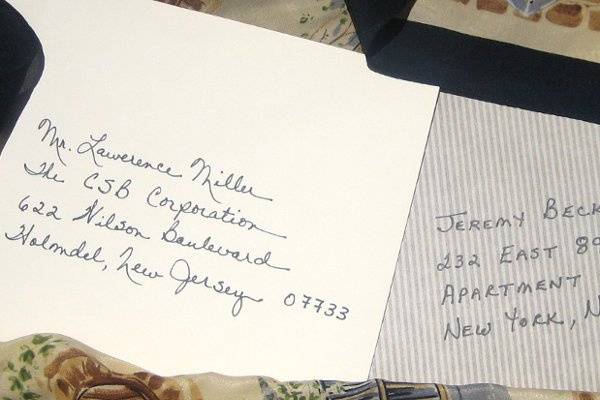 Mr. Lawerence Miller
The CSB Corporation
622 Wilson Bouleward
Holmdel, New Jersey 07733
JEREMY BECK
232 EAST 80
APARTMENT
NEW YORK, N